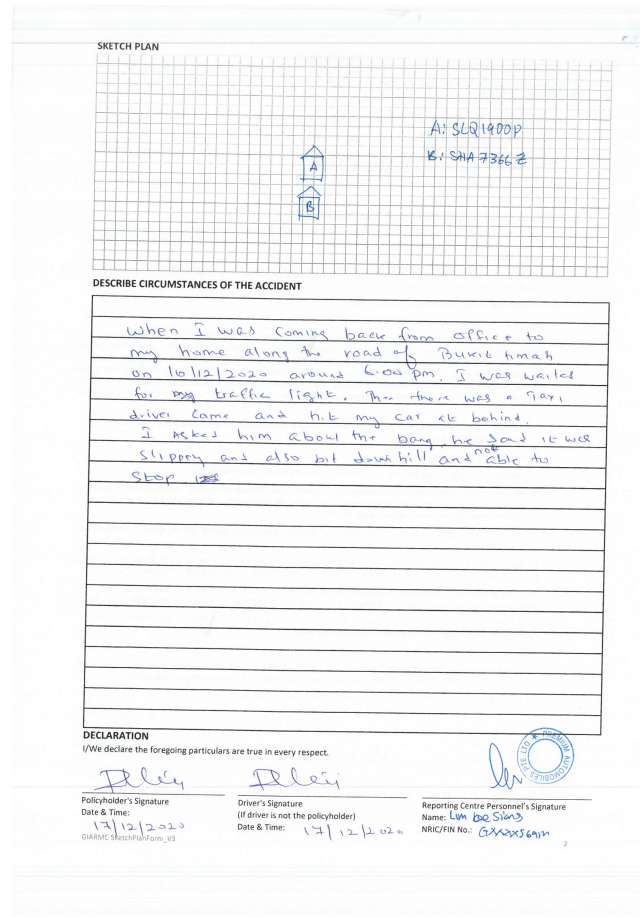 SKETCH PLAN
A: SLQ1900P
B: SHA 7366 Z
A
B
DESCRIBE CIRCUMSTANCES OF THE ACCIDENT
When I was coming back from office to
my home along the road of Bukik timah
on 10/12/2020 around 6.00 pm. I was waited
for traffic light. Then there was a Taxi
driver came and hit my car at behind.
I Asked him about the bang, he said it was
slippey and also bit downhill and not able to
stop
DECLARATION
I/We declare the foregoing particulars are true in every respect.
PREMIUM AUTOMOBILES PTE LTD
Policyholder's Signature
Date & Time:
17/12/2020
GIARMC SketchPlanForm_V3
Driver's Signature
(If driver is not the policyholder)
Date & Time: 17/12/2020
Reporting Centre Personnel's Signature
Name: Lim Siang
NRIC/FIN No.:
2